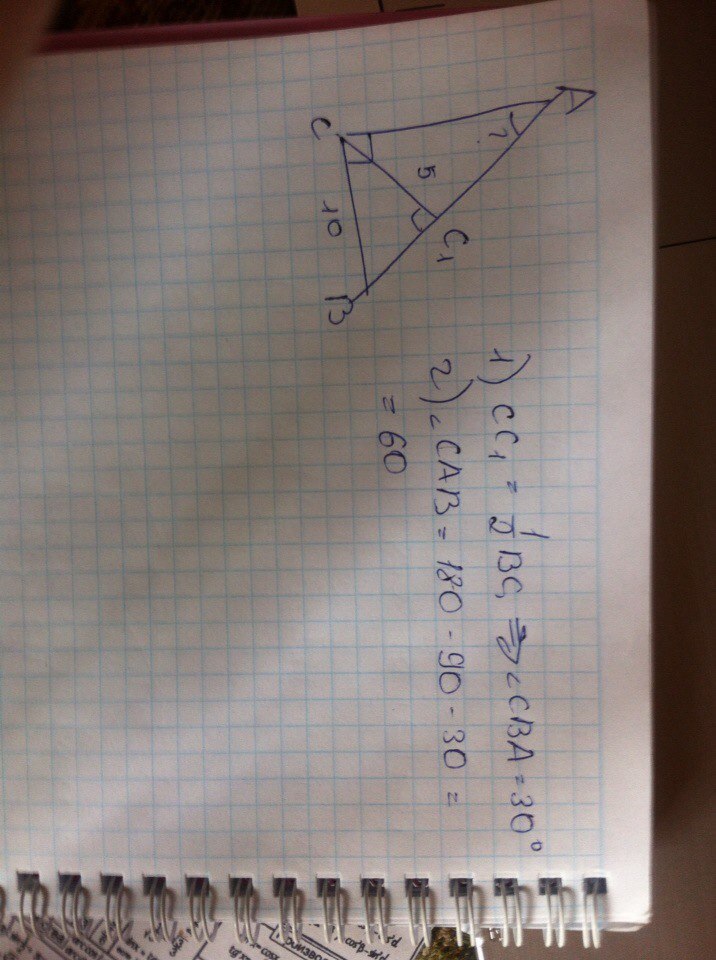 A
?
C
5
C₁
10
B
1) CC₁ = 1/2 BC, ⇒ ∠CBA = 30°
2) ∠CAB = 180 - 90 - 30 =
= 60